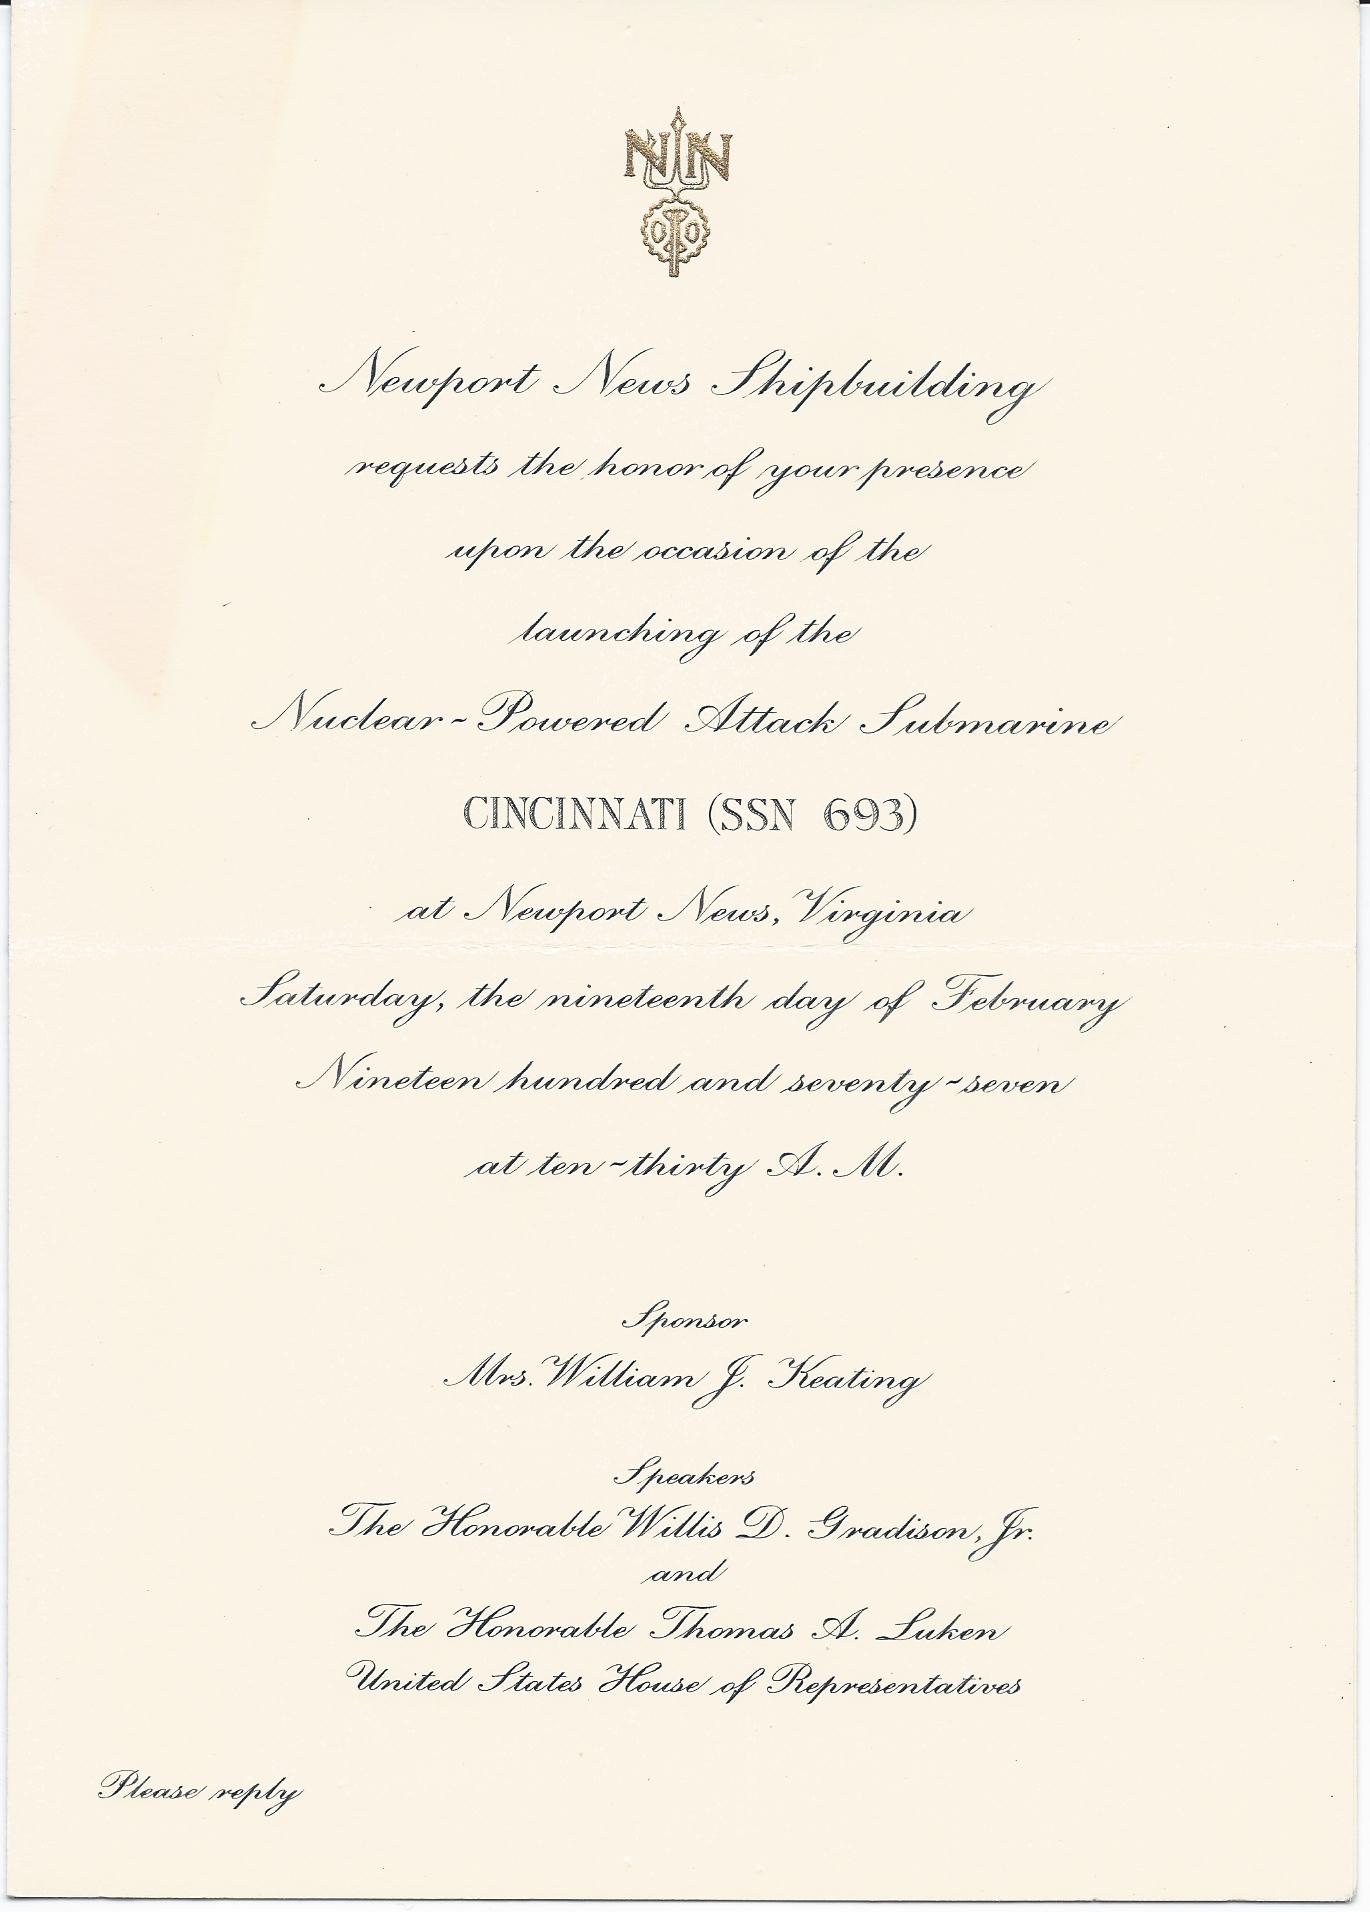 NN
Newport News Shipbuilding
requests the honor of your presence
upon the occasion of the
launching of the
Nuclear-Powered Attack Submarine
CINCINNATI (SSN 693)
at Newport News, Virginia
Saturday, the nineteenth day of February
Nineteen hundred and seventy-seven
at ten-thirty A. M.
Sponsor
Mrs. William J. Keating
Speakers
The Honorable Willis D. Gradison, Jr.
and
The Honorable Thomas A. Luken
United States House of Representatives
Please reply